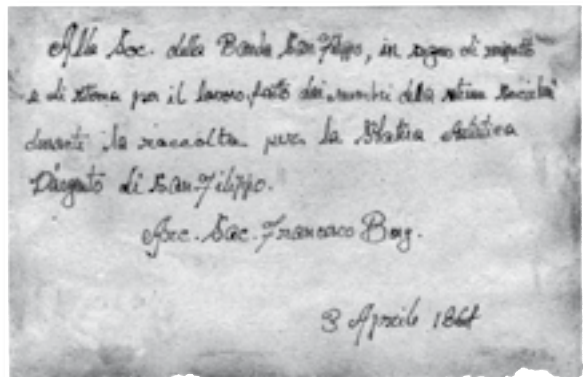 Alla Soc. della Banda San Filippo, in segno di rispetto
e di stima per il lavoro fatto dai membri della stessa Società
durante la raccolta per la Statua Artistica
D'argento di San Filippo.
Arc. Sac. Francesco Borg.
3 Aprile 1864